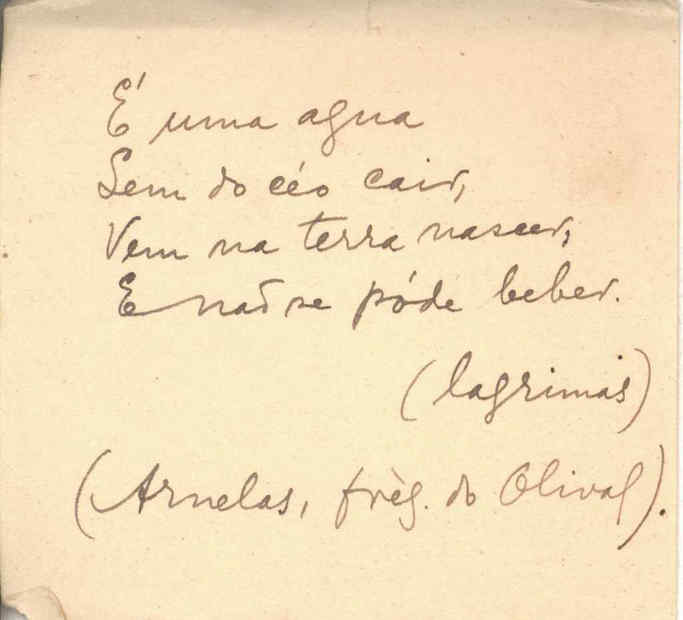 É uma agua
Sem do céo cair,
Vem na terra nascer,
E não se póde beber.
(lagrimas)
(Arnelas, frèg. do Olival).